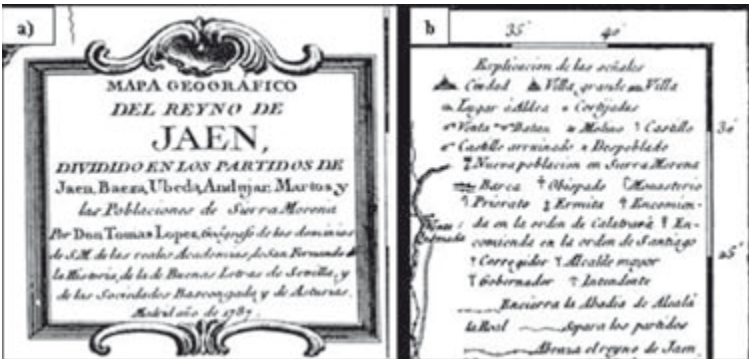 a)
MAPA GEOGRÁFICO
DEL REYNO DE
JAEN,
DIVIDIDO EN LOS PARTIDOS DE
Jaen, Baeza, Ubeda, Andujar, Martos, y
las Poblaciones de Sierra Morena
Por Don Tomas Lopez, Geógrafo de los dominios
de S.M. de las reales Academias, de San Fernando de
la Historia, de la de Buenas Letras de Sevilla, y
de las Sociedades Bascongada y de Asturias.
Madrid año de 1787.
b
35 40
Esplicacion de las señales
Ciudad Villa grande Villa
Lugar ó Aldea Cortijadas
Venta Batan Molino Castillo
Castillo arruinado Despoblado
Nueva poblacion en Sierra Morena
Barca Obispado Monasterio
Priorato Ermita Encomien-
da en la orden de Calatrava En-
comienda en la orden de Santiago
Corregidor Alcalde mayor
Gobernador Intendente
Encierra la Abadia de Alcalá
la Real Separa los partidos
Abraza el reyno de Jaen
30
25